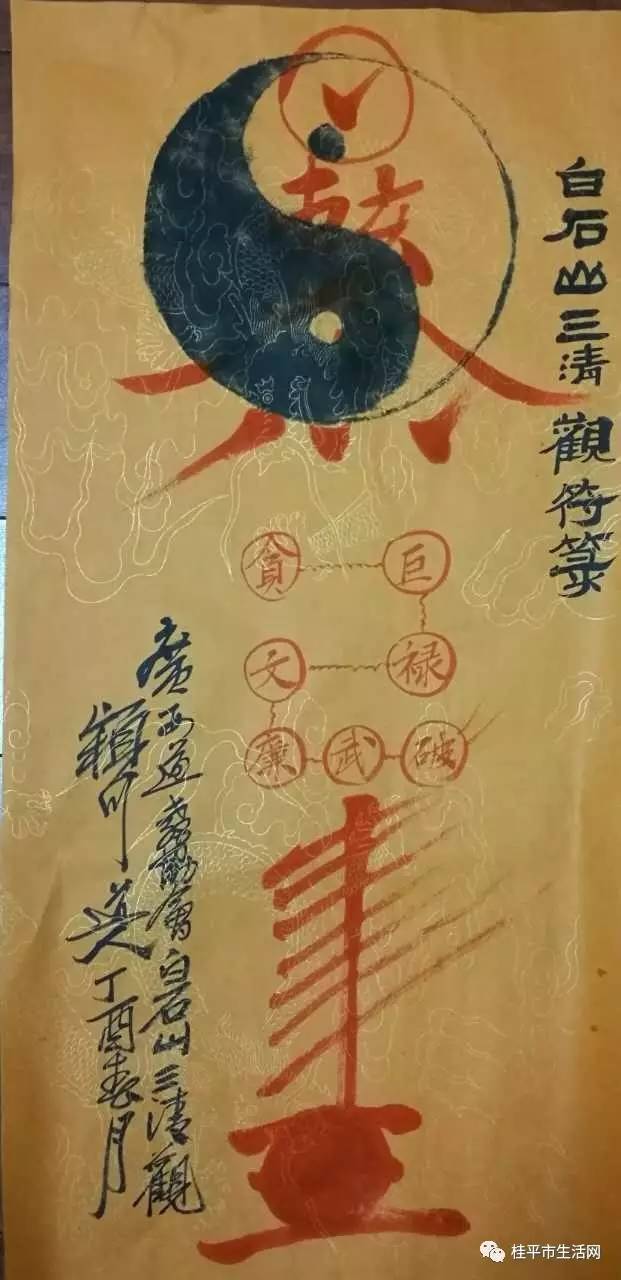 白石山三清觀符箓
貪 巨
文 禄
廉 武 破
廣西道教協會白石山三清觀
道人丁酉春月
桂平市生活网